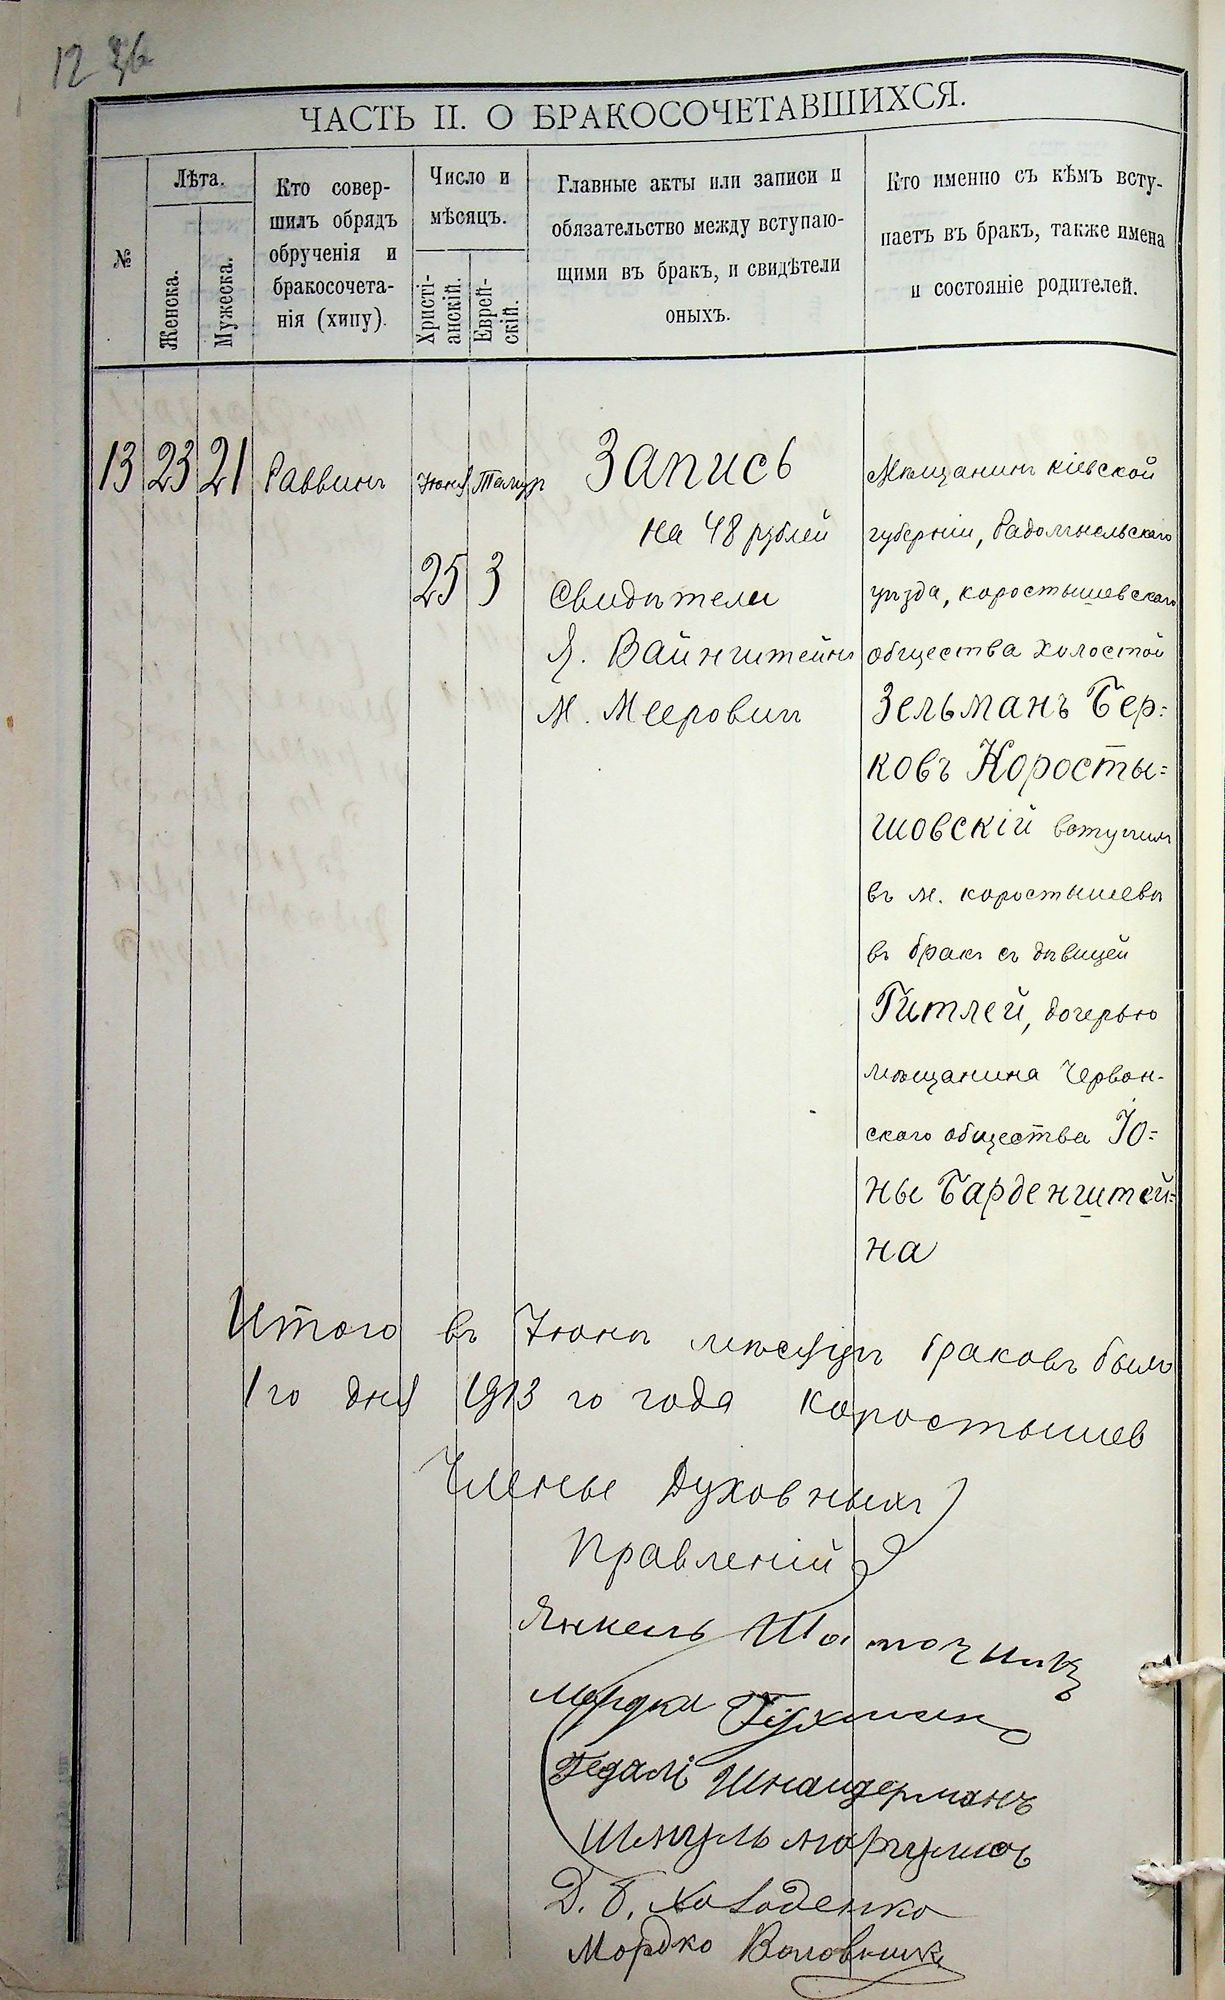 12 36
ЧАСТЬ II. О БРАКОСОЧЕТАВШИХСЯ.
№
Лѣта.
Женска.
Мужеска.
Кто совер-
шилъ обрядъ
обрученія и
бракосочета-
нія (хипу).
Число и
мѣсяцъ.
Христі-
анскій.
Еврей-
скій.
Главные акты или записи и
обязательство между вступаю-
щими въ бракъ, и свидѣтели
оныхъ.
Кто именно съ кѣмъ всту-
паетъ въ бракъ, также имена
и состояніе родителей.
13 23 21 Раввинъ Іюня Тамуз
25 3
Запись
на 48 рублей
Свидѣтели
Я. Вайнштейнъ
М. Мееровичъ
Мѣщанинъ кіевской
губерніи, Радомысльскаго
уѣзда, коростышевскаго
общества холостой
Зельманъ Бер=
ковъ Коросты=
шовскій вступилъ
въ м. коростышевѣ
въ бракъ съ дѣвицей
Гитлей, дочерью
мѣщанина Червон-
скаго общества Іо=
ны Барденштей=
на
Итого въ Іюнѣ мѣсяцѣ браковъ было
1го дня 1913 го года Коростышев
Членые Духовныхъ
Правленій
Янкель
Мордка Гухман
Гедалі Шнайдерманъ
Шмуль Маргулисъ
Д. Б. Холоденко
Мордко Воловник